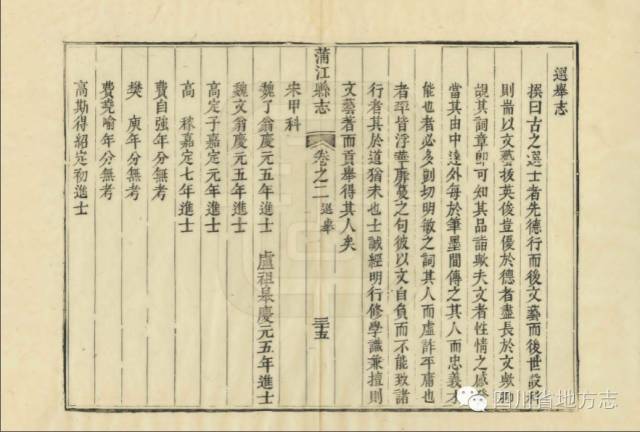 選舉志
撰曰古之選士者先德行而後文藝而後世設科
則耑以文藝拔英俊豈優於德者盡長於文歟即
說其詞章即可知其品詣歟夫文者性情之感發
當其由中達外每於筆墨間傳之其人而忠義才
能也者必多剴切明敏之詞其人而虛詐平庸也
者平皆浮靡之句彼以文自負而不能致諸
行者其於道猶未也士誠經明行修學識兼擅則
文藝著而貢舉得其人矣
蒲江縣志
卷之二
選舉
三十五
宋甲科
魏了翁慶元五年進士
盧祖皋慶元五年進士
魏文翁慶元五年進士
高定子嘉定元年進士
高 稼嘉定七年進士
費自強年分無考
樊 庚年分無考
費堯喻年分無考
高斯得紹定初進士
四川省地方志